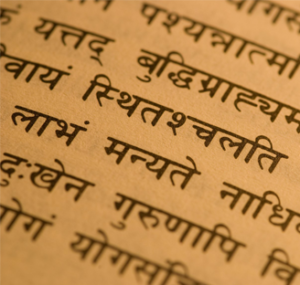 योगस
पश्यन्नात्म
कं यत्तद् बुद्धिग्राह्यम
वैवायं स्थितश्चलति
लाभं मन्यते नाधि
दुःखेन गुरुणापि वि
योगं योगसंज्ञि